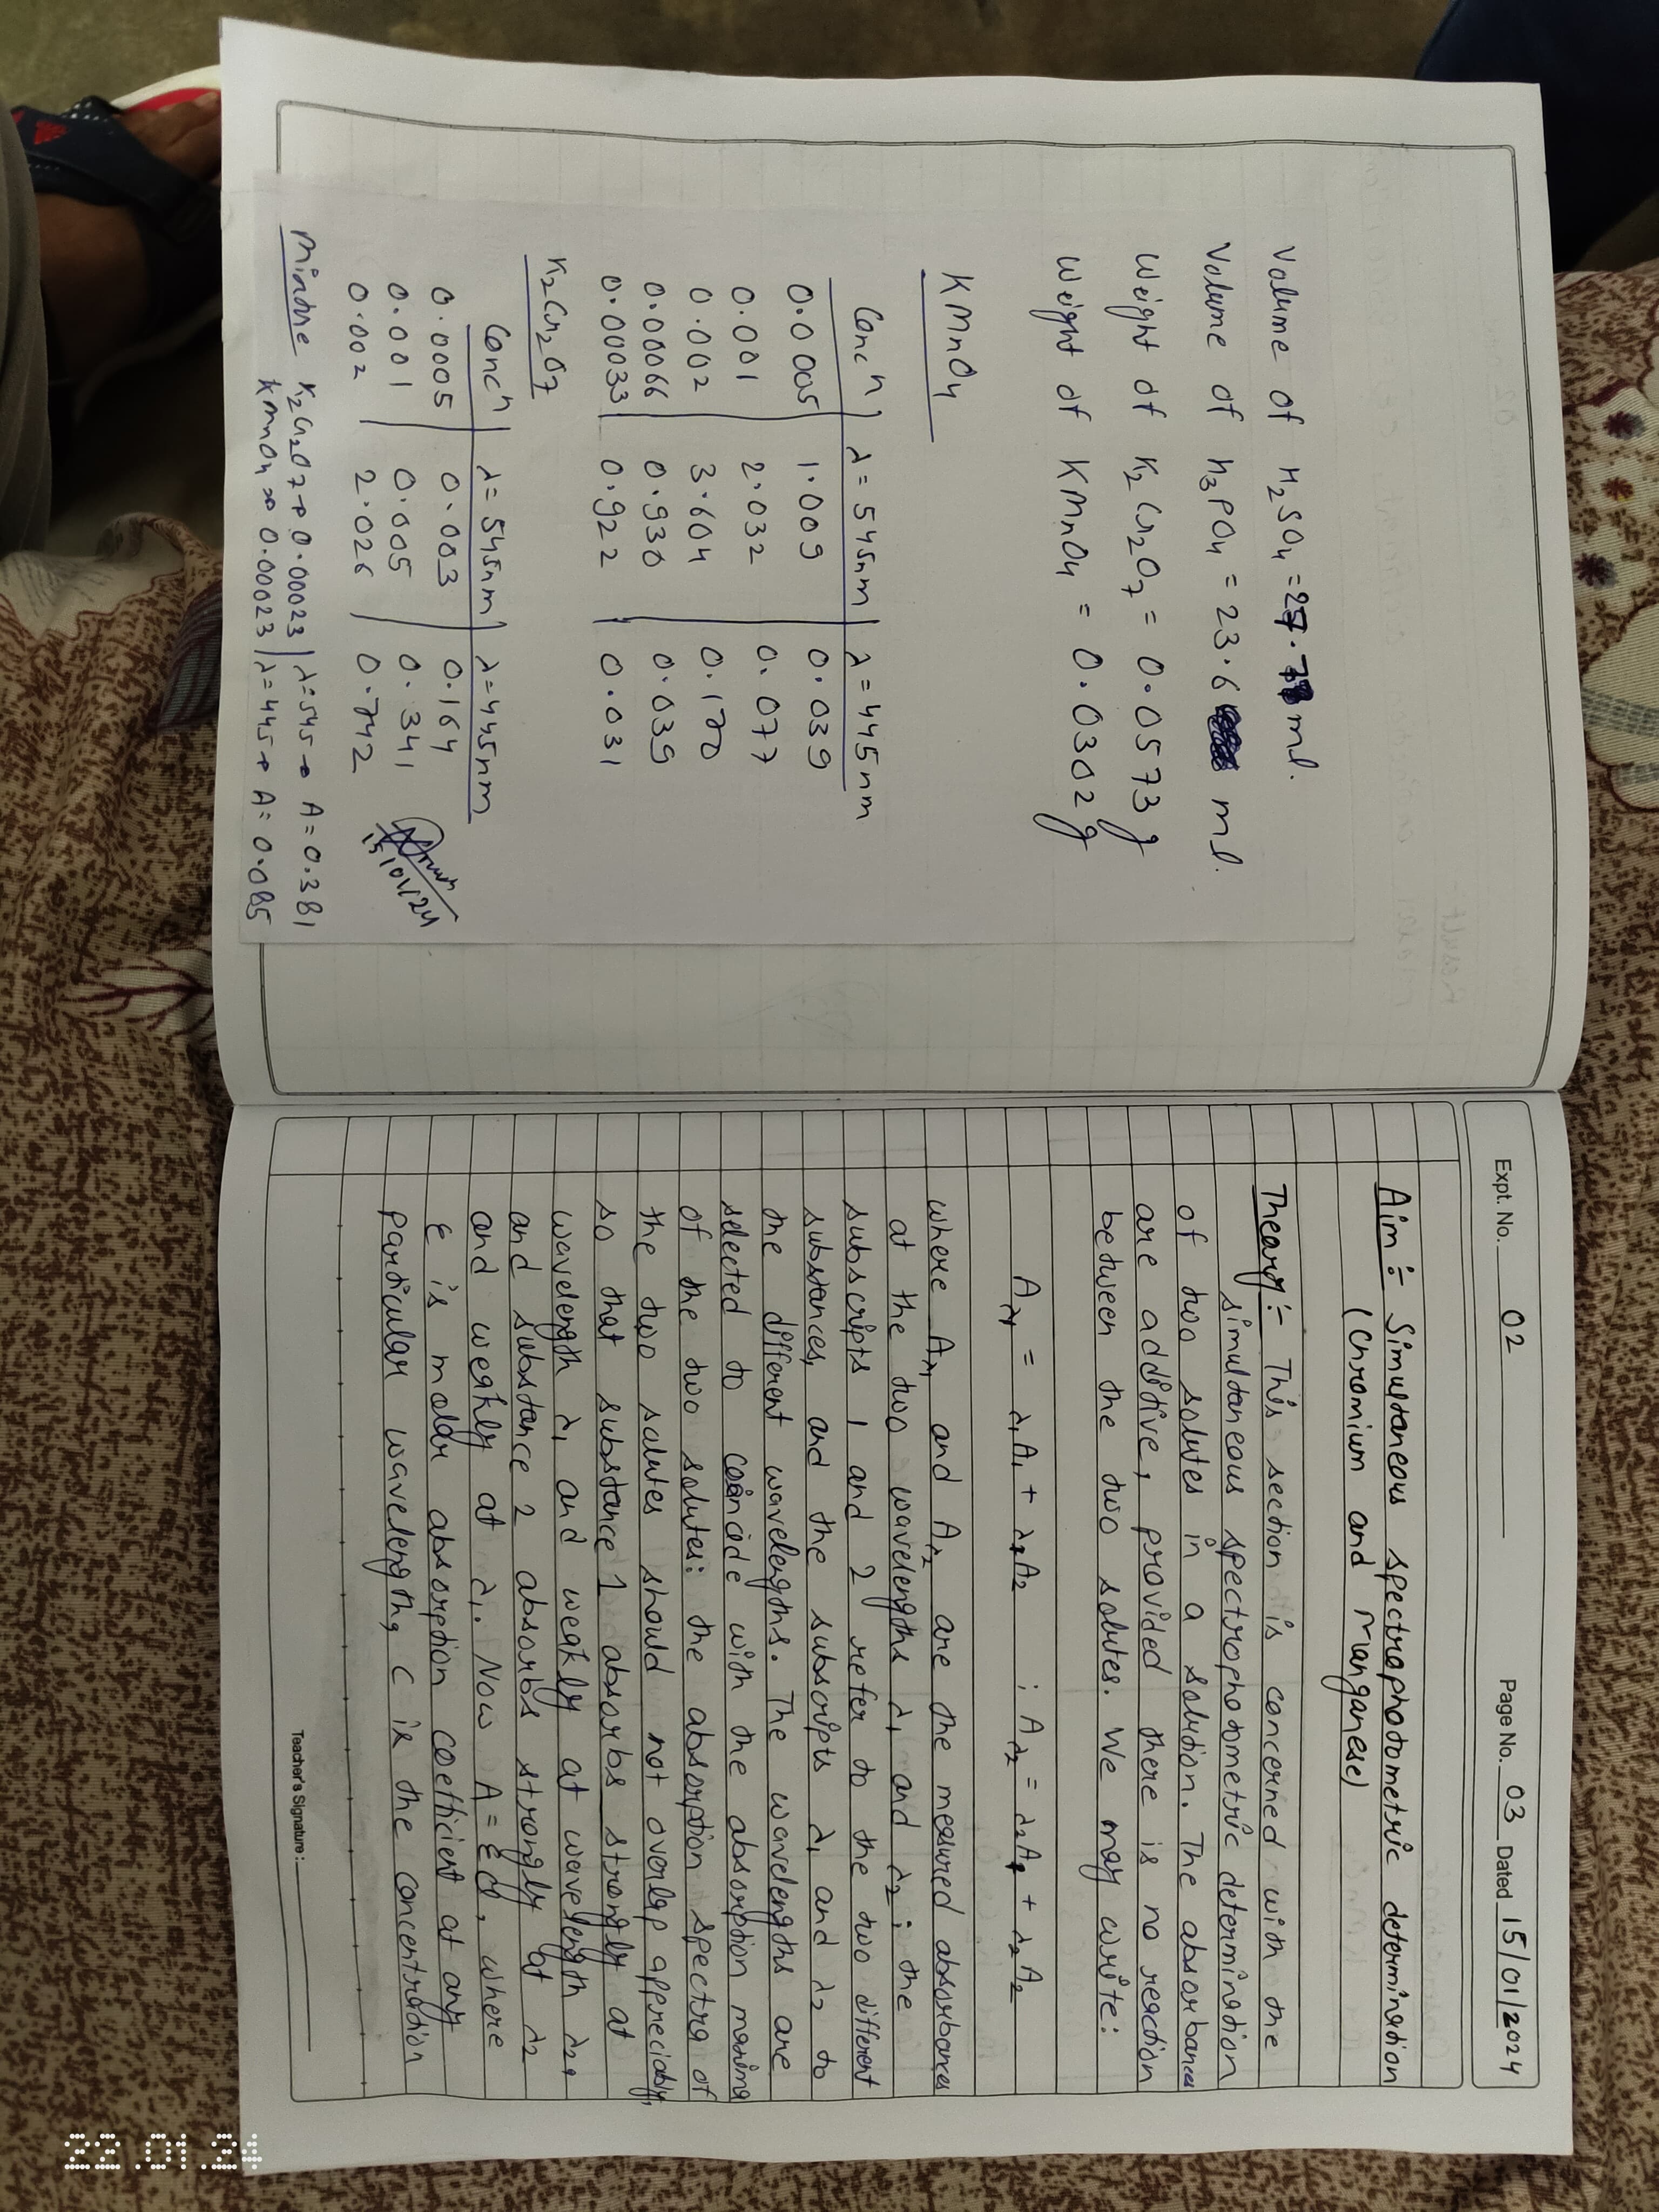 Volume of H₂SO₄ = 27. ml.
Volume of H₃PO₄ = 23.6 ml.
Weight of K₂Cr₂O₇ = 0.0573 g
Weight of KMnO₄ = 0.0302 g
KMnO₄
Concⁿ | λ = 545nm | λ = 445nm
0.0005 | 1.009 | 0.039
0.001 | 2.032 | 0.077
0.002 | 3.604 | 0.170
0.00066 | 0.930 | 0.039
0.00033 | 0.922 | 0.031
K₂Cr₂O₇
Concⁿ | λ = 545nm | λ=445nm
0.0005 | 0.003 | 0.164
0.001 | 0.005 | 0.341
0.002 | 2.026 | 0.742
15/01/24
Mixture K₂Cr₂O₇ → 0.00023 | λ=545 → A = 0.381
KMnO₄ → 0.00023 | λ=445 → A = 0.085
Expt. No. 02 Page No. 03 Dated 15/01/2024
Aim :- Simultaneous spectrophotometric determination
(Chromium and Manganese)
Theary :- This section is concerned with the
simultaneous spectrophotometric determination
of two solutes in a solution. The absorbances
are additive, provided there is no reaction
between the two solutes. We may write:
A_λ₁ = λ₁A₁ + λ₁A₂ ; A_λ₂ = λ₂A₁ + λ₂A₂
where A_λ₁ and A_λ₂ are the measured absorbances
at the two wavelengths λ₁ and λ₂; the
subscripts 1 and 2 refer to the two different
substances, and the subscripts λ₁ and λ₂ to
the different wavelengths. The wavelengths are
selected to coincide with the absorption maxima
of the two solutes: the absorption spectra of
the two solutes should not overlap appreciably,
so that substance 1 absorbs strongly at
wavelength λ₁ and weakly at wavelength λ₂,
and substance 2 absorbs strongly at λ₂
and weakly at λ₁. Now A = εcl, where
ε is molar absorption coefficient at any
particular wavelength, c is the concentration
Teacher's Signature :
22.01.24